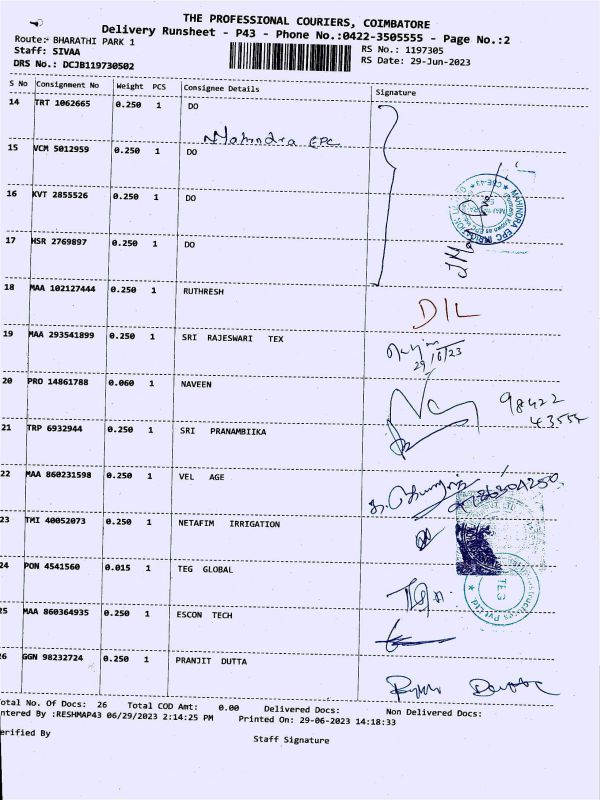 THE PROFESSIONAL COURIERS, COIMBATORE
Delivery Runsheet - P43 - Phone No.:0422-3505555 - Page No.:2
Route:- BHARATHI PARK 1
RS No.: 1197305
Staff: SIVAA
RS Date: 29-Jun-2023
DRS No.: DCJB119730502
S No Consignment No Weight PCS Consignee Details Signature
14 TRT 1062665 0.250 1 DO
Mahindra EPC
15 VCM 5012959 0.250 1 DO
16 KVT 2855526 0.250 1 DO
17 HSR 2769897 0.250 1 DO
18 MAA 102127444 0.250 1 RUTHRESH
DIL
19 MAA 293541899 0.250 1 SRI RAJESWARI TEX
29/6/23
20 PRO 14861788 0.060 1 NAVEEN
98422
43555
21 TRP 6932944 0.250 1 SRI PRANAMBIIKA
22 MAA 860231598 0.250 1 VEL AGE
23 TMI 40052073 0.250 1 NETAFIM IRRIGATION
24 PON 4541560 0.015 1 TEG GLOBAL
TEG
25 MAA 860364935 0.250 1 ESCON TECH
26 GGN 98232724 0.250 1 PRANJIT DUTTA
otal No. Of Docs: 26 Total COD Amt: 0.00 Delivered Docs: Non Delivered Docs:
ntered By :RESHMAP43 06/29/2023 2:14:25 PM Printed On: 29-06-2023 14:18:33
erified By
Staff Signature